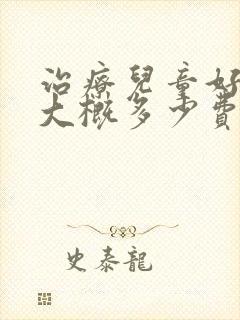 治療兒童好
大概多少費
史泰龍